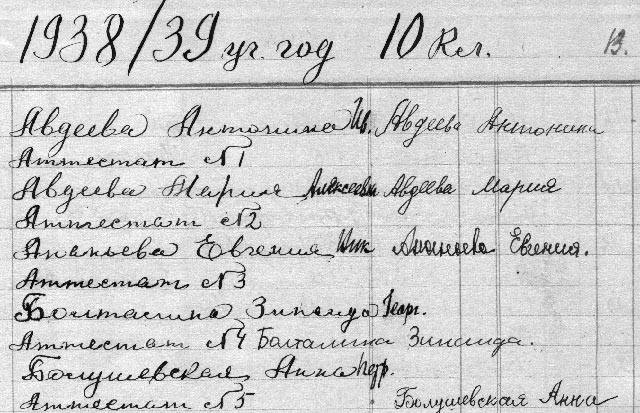 1938/39 уч. год 10 Кл. 13.
Авдеева Антонина Ив. Авдеева Антонина
Аттестат №1
Авдеева Мария Алексеевн Авдеева Мария
Аттестат №2
Ананьева Евгения Ник Ананьева Евгения.
Аттестат №3
Болталина Зинаида Георг.
Аттестат №4 Болталина Зинаида.
Болушевская Анна Петр.
Аттестат №5 Болушевская Анна